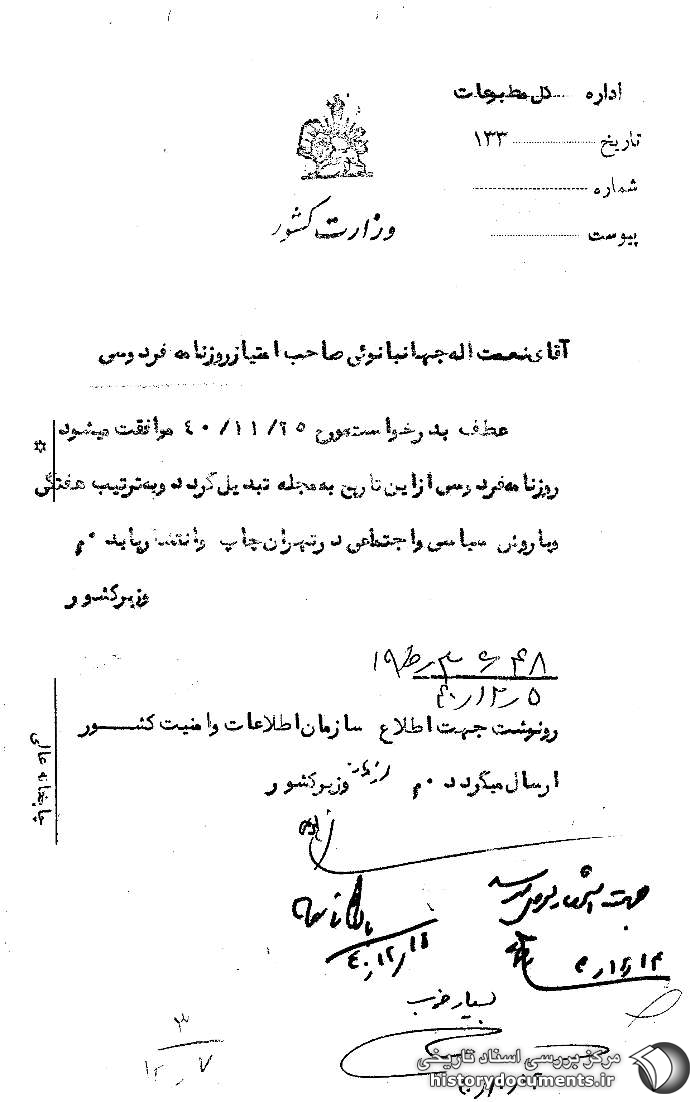 اداره کل مطبوعات
تاریخ ۱۳۳
شماره
پیوست
وزارت کشور
آقای نعمت اله جهانبانوئی صاحب امتیاز روزنامه فردوسی
عطف بدرخواست مورخ ۴۰/۱۱/۲۵ موافقت میشود
روزنامه فردوسی از این تاریخ به مجله تبدیل گردد و به ترتیب هفتگی
و با روش سیاسی و اجتماعی در تهران چاپ و انتشار یابد ۰م
وزیر کشور
۴۰/۱۲/۵
رونوشت جهت اطلاع سازمان اطلاعات و امنیت کشور
ارسال میگردد ۰م وزیر کشور
چاپخانه عالی
۴۰/۱۲/۱۴
بسیار خوب
۳
۱۲/۷
مرکز بررسی اسناد تاریخی
historydocuments.ir